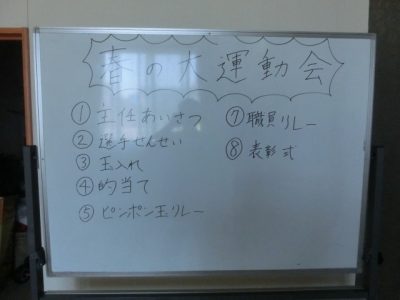 春の大運動会
① 主任あいさつ
② 選手せんせい
③ 玉入れ
④ 的当て
⑤ ピンポン玉リレー
⑦ 職員リレー
⑧ 表彰式